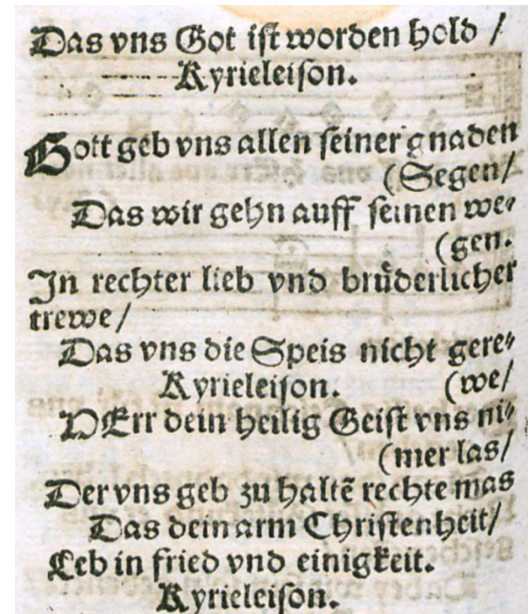 Das vns Got ist worden hold /
Kyrieleison.
Gott geb vns allen seiner gnaden
(Segen/
Das wir gehn auff seinen we⸗
(gen.
In rechter lieb vnd bruͤderlicher
trewe/
Das vns die Speis nicht gere⸗
Kyrieleison. (we/
HErr dein heilig Geist vns ni⸗
(mer las/
Der vns geb zu haltẽ rechte mas
Das dein arm Christenheit/
Leb in fried vnd einigkeit.
Kyrieleison.